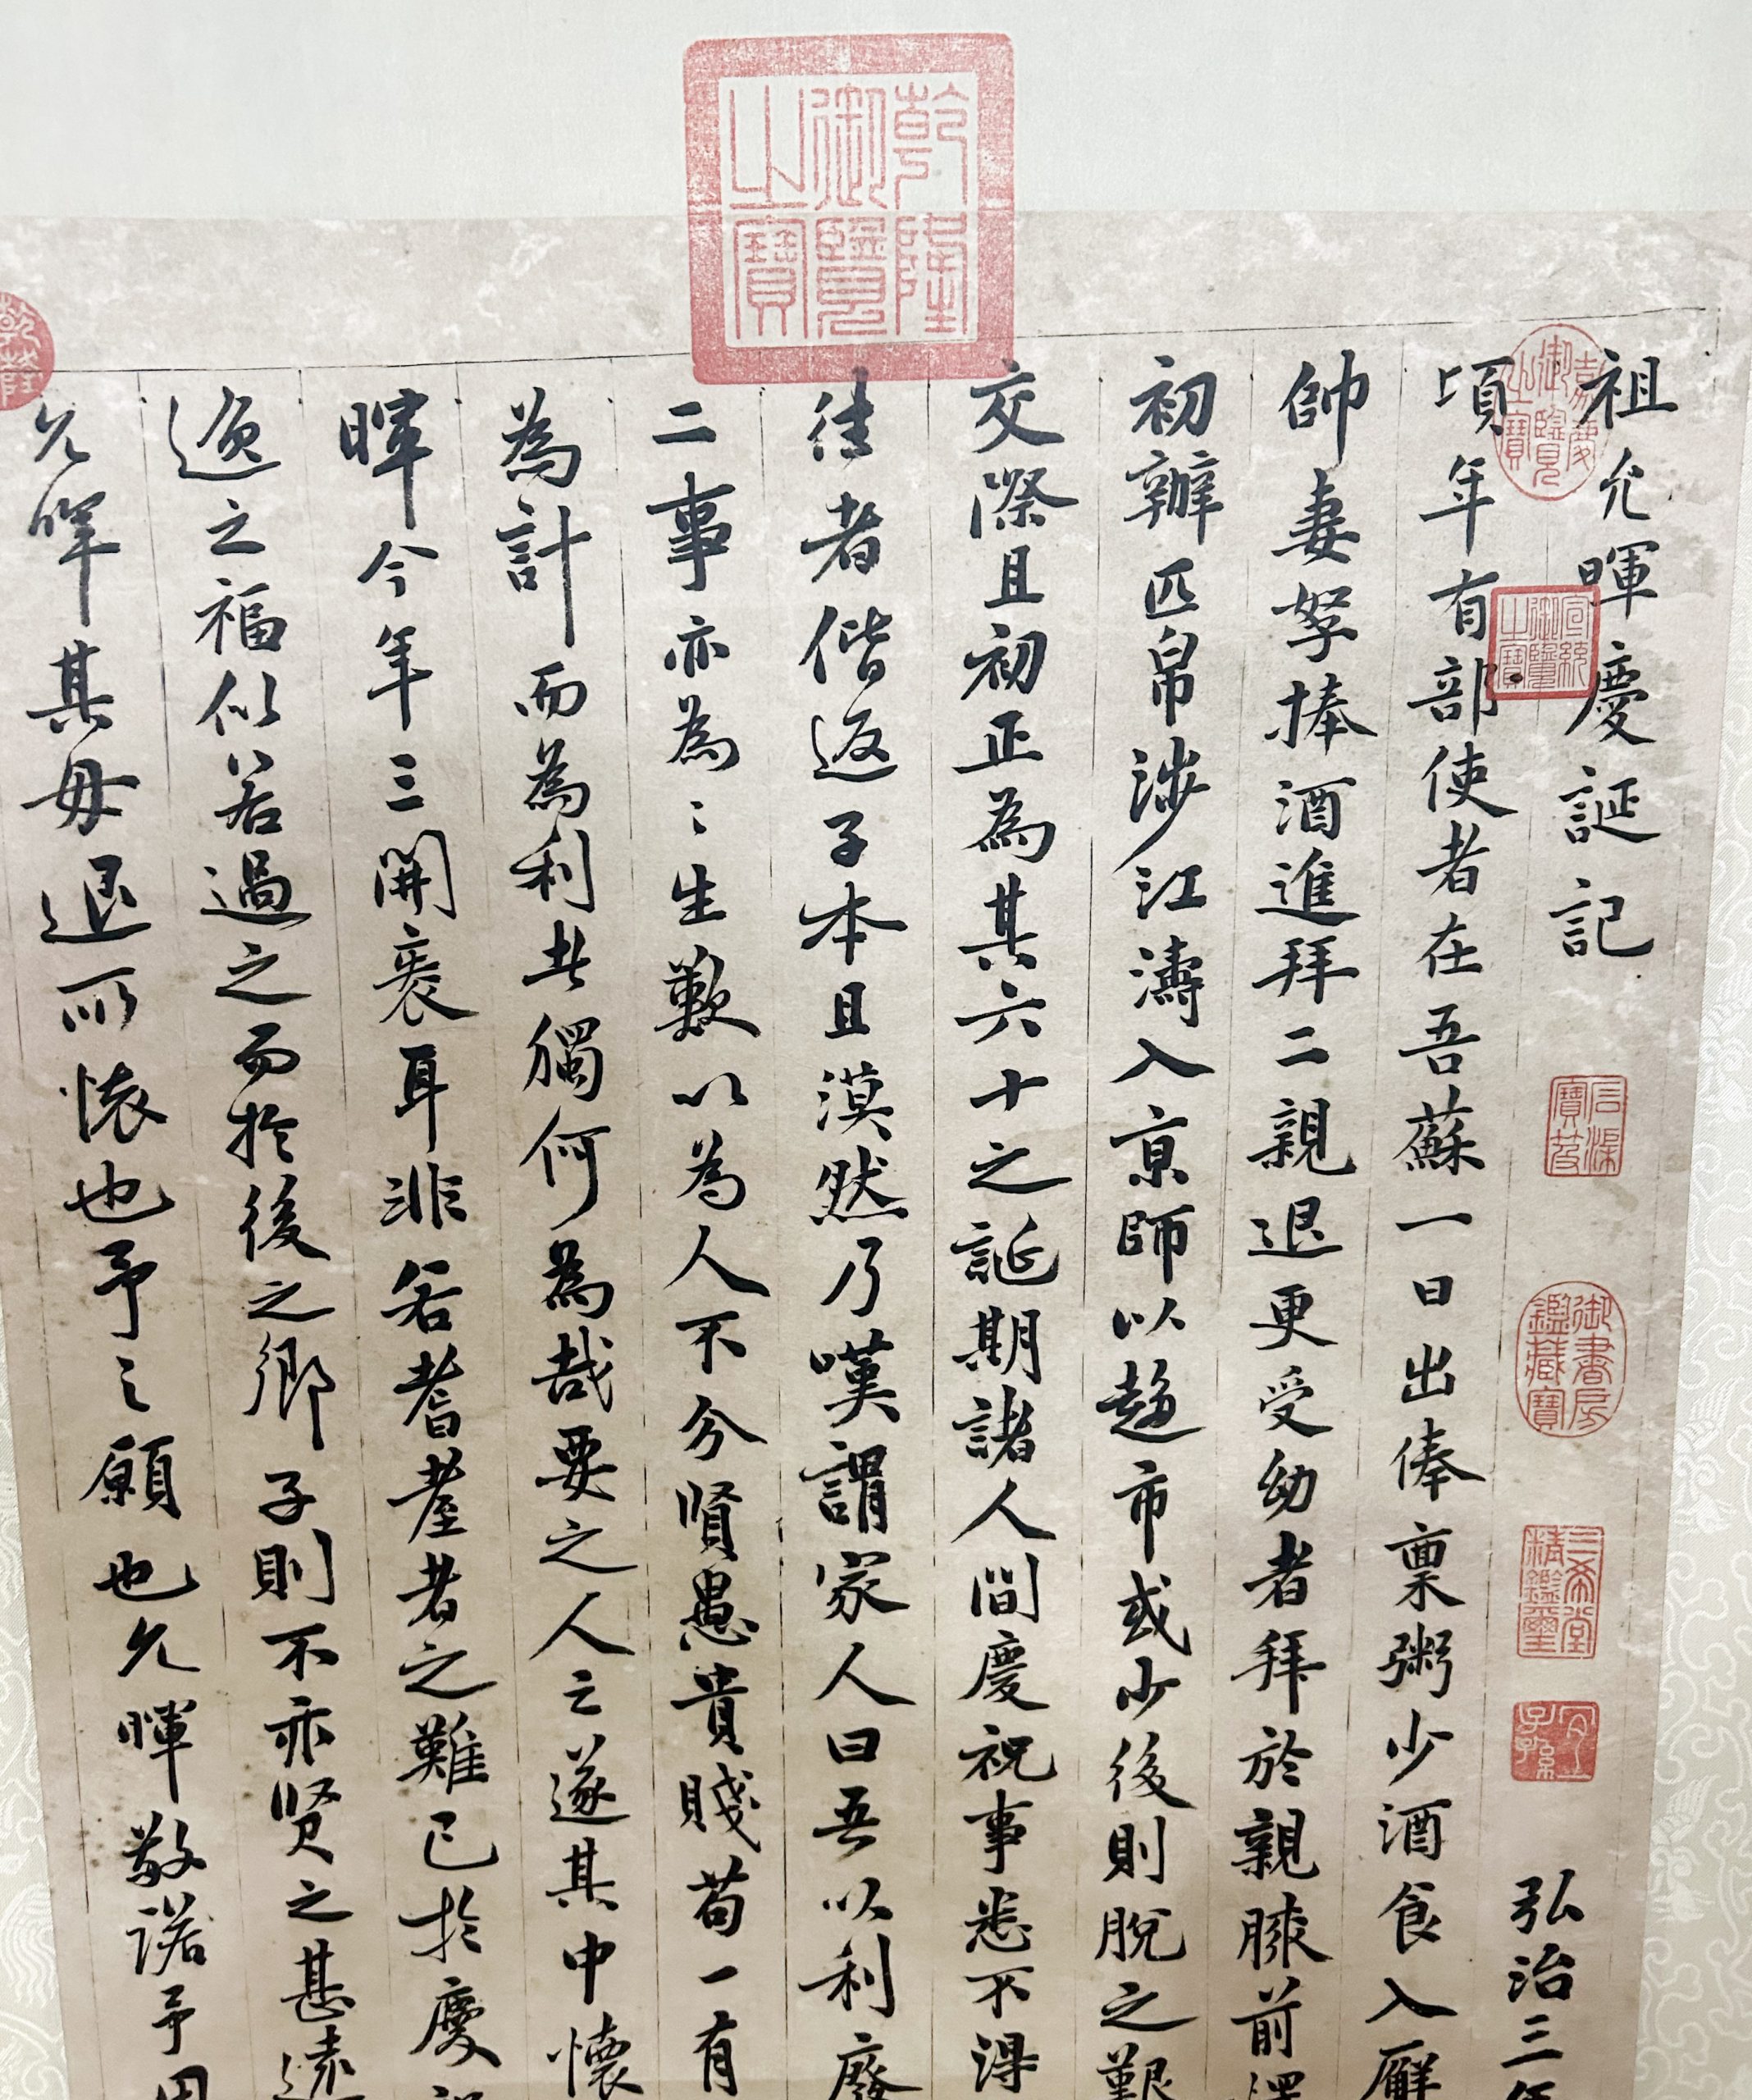 乾隆御覽之寶
嘉慶御覽之寶
宣統御覽之寶
石渠寶笈
御書房鑑藏寶
三希堂精鑑璽
宜子孫
乾隆
祖允暉慶誕記 弘治三年
頃年有部使者在吾蘇一日出俸稟粥少酒食入廨
帥妻孥捧酒進拜二親退更受幼者拜於親膝前
初辦匹帛涉江濤入京師以趨市或少後則脫之艱
交際且初正為其六十之誕期諸人間慶祝事悉不得
徃者偕返子本且漠然乃嘆謂家人曰吾以利廢
二事亦為〻生歎以為人不分賢愚貴賤苟一有
為計而為利此獨何為哉要之人云遂其中懷
暉今年三開袠耳非若耆耋者之難已於慶
邀之福似若過之而於後之鄉子則不亦賢之甚遠
允暉其毋退所懷也予之願也允暉敬諾予